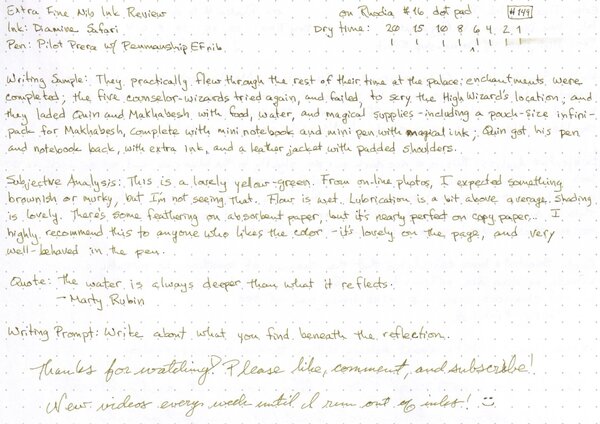 Extra Fine Nib Ink Review on Rhodia #16 dot pad #149
Ink: Diamine Safari Dry time: 20 15 10 8 6 4 2 1
Pen: Pilot Prera w/ Penmanship EF nib
Writing Sample: They practically flew through the rest of their time at the palace; enchantments were
completed; the five counselor-wizards tried again, and failed, to scry the High Wizard's location; and
they laded Quin and Makhabesh with food, water, and magical supplies - including a pouch-size infini-
pack for Makhabesh, complete with mini notebook and mini pen with magical ink; Quin got his pen
and notebook back, with extra ink, and a leather jacket with padded shoulders.
Subjective Analysis: This is a lovely yellow-green. From on-line photos, I expected something
brownish or murky, but I'm not seeing that. Flow is wet. Lubrication is a bit above average. Shading
is lovely. There's some feathering on absorbent paper, but it's nearly perfect on copy paper... I
highly recommend this to anyone who likes the color - it's lovely on the page, and very
well-behaved in the pen.
Quote: The water is always deeper than what it reflects.
- Marty Rubin
Writing Prompt: Write about what you find beneath the reflection.
Thanks for watching! Please like, comment, and subscribe!
New videos every week until I run out of inks!